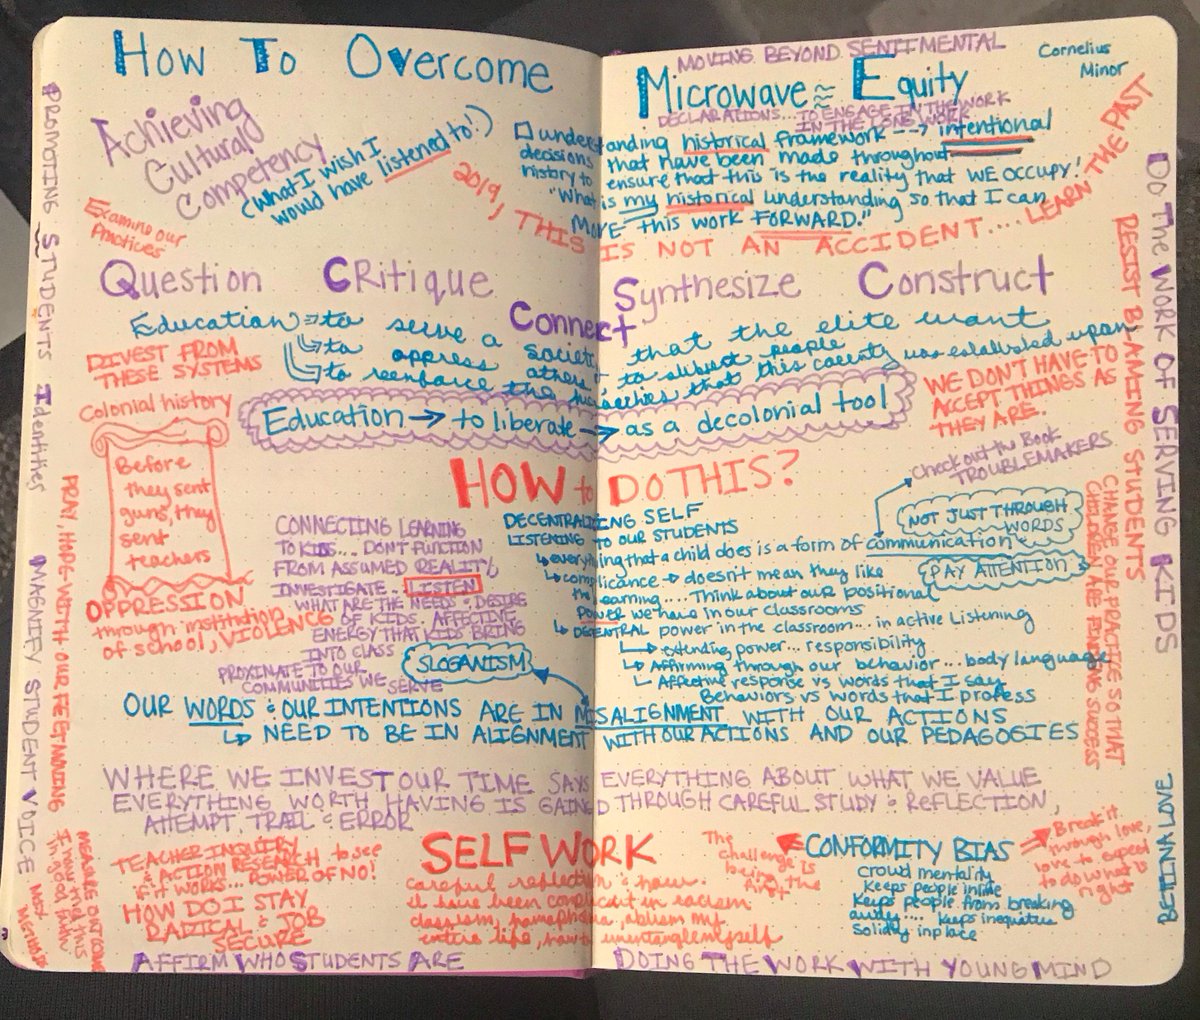 How To Overcome
Microwave ≈ Equity
MOVING BEYOND SENTIMENTAL
DECLARATIONS... TO ENGAGE IN THE WORK
IN THE WORK
Cornelius
Minor
Achieving
Cultural
Competency
(What I wish I
would have listened to!)
Examine our
Practices
understanding historical framework --> intentional
decisions that have been made throughout
history to ensure that this is the reality that WE OCCUPY!
"What is my historical understanding so that I can
MOVE this work FORWARD."
2019, THIS IS NOT AN ACCIDENT.... LEARN THE PAST
Question CRitique Synthesize Construct
Connect
Education → to serve a society that the elite want
↳ to oppress others, to subject people
↳ to reenforce the that this was established upon
DIVEST FROM
THESE SYSTEMS
Education → to liberate → as a decolonial tool
WE DON'T HAVE TO
ACCEPT THINGS AS
THEY ARE.
Colonial history
Before
they sent
guns, they
sent
teachers
OPPRESSION
through institution
of school, VIOLENCE
HOW to DO THIS?
Check out the Book
TROUBLEMAKERS
CONNECTING LEARNING
TO KIDS.... DON'T FUNCTION
FROM ASSUMED REALITY,
INVESTIGATE - LISTEN
WHAT ARE THE NEEDS & DESIRE
OF KIDS. AFFECTING
ENERGY THAT KIDS BRING
INTO CLASS
PROXIMATE TO OUR
COMMUNITIES WE SERVE
DECENTRALIZING SELF
LISTENING TO OUR STUDENTS
↳ everything that a child does is a form of communication
NOT JUST THROUGH
WORDS
PAY ATTENTION
↳ complicance → doesn't mean they like
the learning.... Think about our positional
power we have in our classrooms
↳ DECENTRAL power in the classroom... in active Listening
↳ extending power... responsibility
↳ Affirming through our behavior... body language
↳ Affective response vs words that I say
Behaviors vs words that I profess
SLOGANISM
OUR WORDS & OUR INTENTIONS ARE IN MISALIGNMENT WITH OUR ACTIONS
↳ NEED TO BE IN ALIGNMENT WITH OUR ACTIONS AND OUR PEDAGOGIES
WHERE WE INVEST OUR TIME SAYS EVERYTHING ABOUT WHAT WE VALUE
EVERYTHING WORTH HAVING IS GAINED THROUGH CAREFUL STUDY & REFLECTION,
ATTEMPT, TRAIL & ERROR
TEACHER INQUIRY
& ACTION RESEARCH to see
if it works... POWER OF NO!
HOW DO I STAY
RADICAL & JOB
SECURE
SELF WORK
Careful reflection & how
I have been complicant in racism
classism, homophobia, ablism my
entire life, how to unentangle myself
The
challenge is
being the
CONFORMITY BIAS
crowd mentality
Keeps people inline
Keeps people from breaking
away.... keeps inequities
Solidly in place
Break it.
through love,
love to expect
to do what is
right
AFFIRM WHO STUDENTS ARE
DOING THE WORK WITH YOUNG MIND
PROMOTING STUDENTS Identities
MAGNIFY STUDENT VOICE
PRAY, HOPE - WITH OUR FEET MOVING
I may try this
in good faith
DO THE WORK OF SERVING KIDS
RESIST BLAMING STUDENTS
CHANGE OUR PRACTICE SO THAT
CHILDREN ARE FINDING SUCCESS
BETTINA LOVE